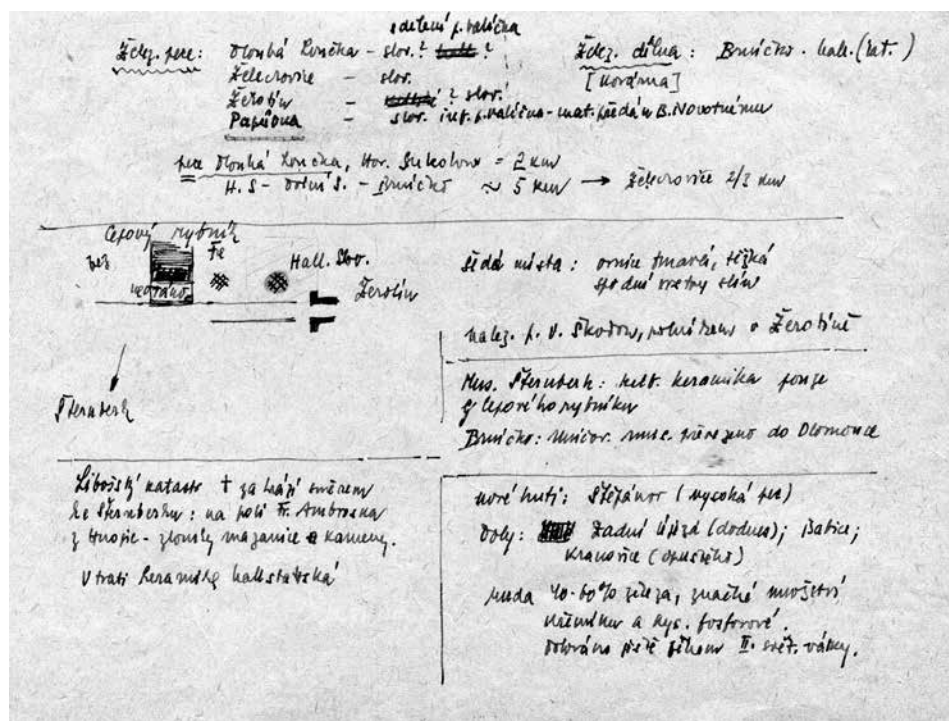 sdělení p. Valíčka
Želez. pece: Dlouhá Loučka - slov.? ?
Želechovice - slov.
Žerotín - ? slov.
Papůvka - slov. inf. p. Valíčka - mat. předán B. Novotnému
Želez. dílna: Brníčko - hall. (lat.)
[kovárna]
pece Dlouhá Loučka, Hor. Sukolom = 2 km
H. S - Dolní S. - Brníčko ≈ 5 km → Želechovice 2/3 km
Cepový rybník
Fe
Hall. Slov.
Žerotín
Šternberk
šedá místa: ornice tmavá, těžká
spodní vrstvy slín
nalez. p. V. Škodou, v Žerotíně
Mus. Šternberk: kelt. keramika pouze
z Cepového rybníku
Brníčko: Uničov. mus. převezeno do Olomouce
Libošský katastr + za hrází směrem
ke Šternberku: na poli Fr. Ambroska
z Hnojic - zlomky mazanice kameny.
V trati keramika hallstatská
nové hutí: Štěpánov (vysoká pec)
Doly: Zadní Újezd (dodnes); Babice;
Krakovice
ruda 40-60% železa, značné množství
křemíku a kys. fosforové.
Dolováno ještě během II. svět. války.